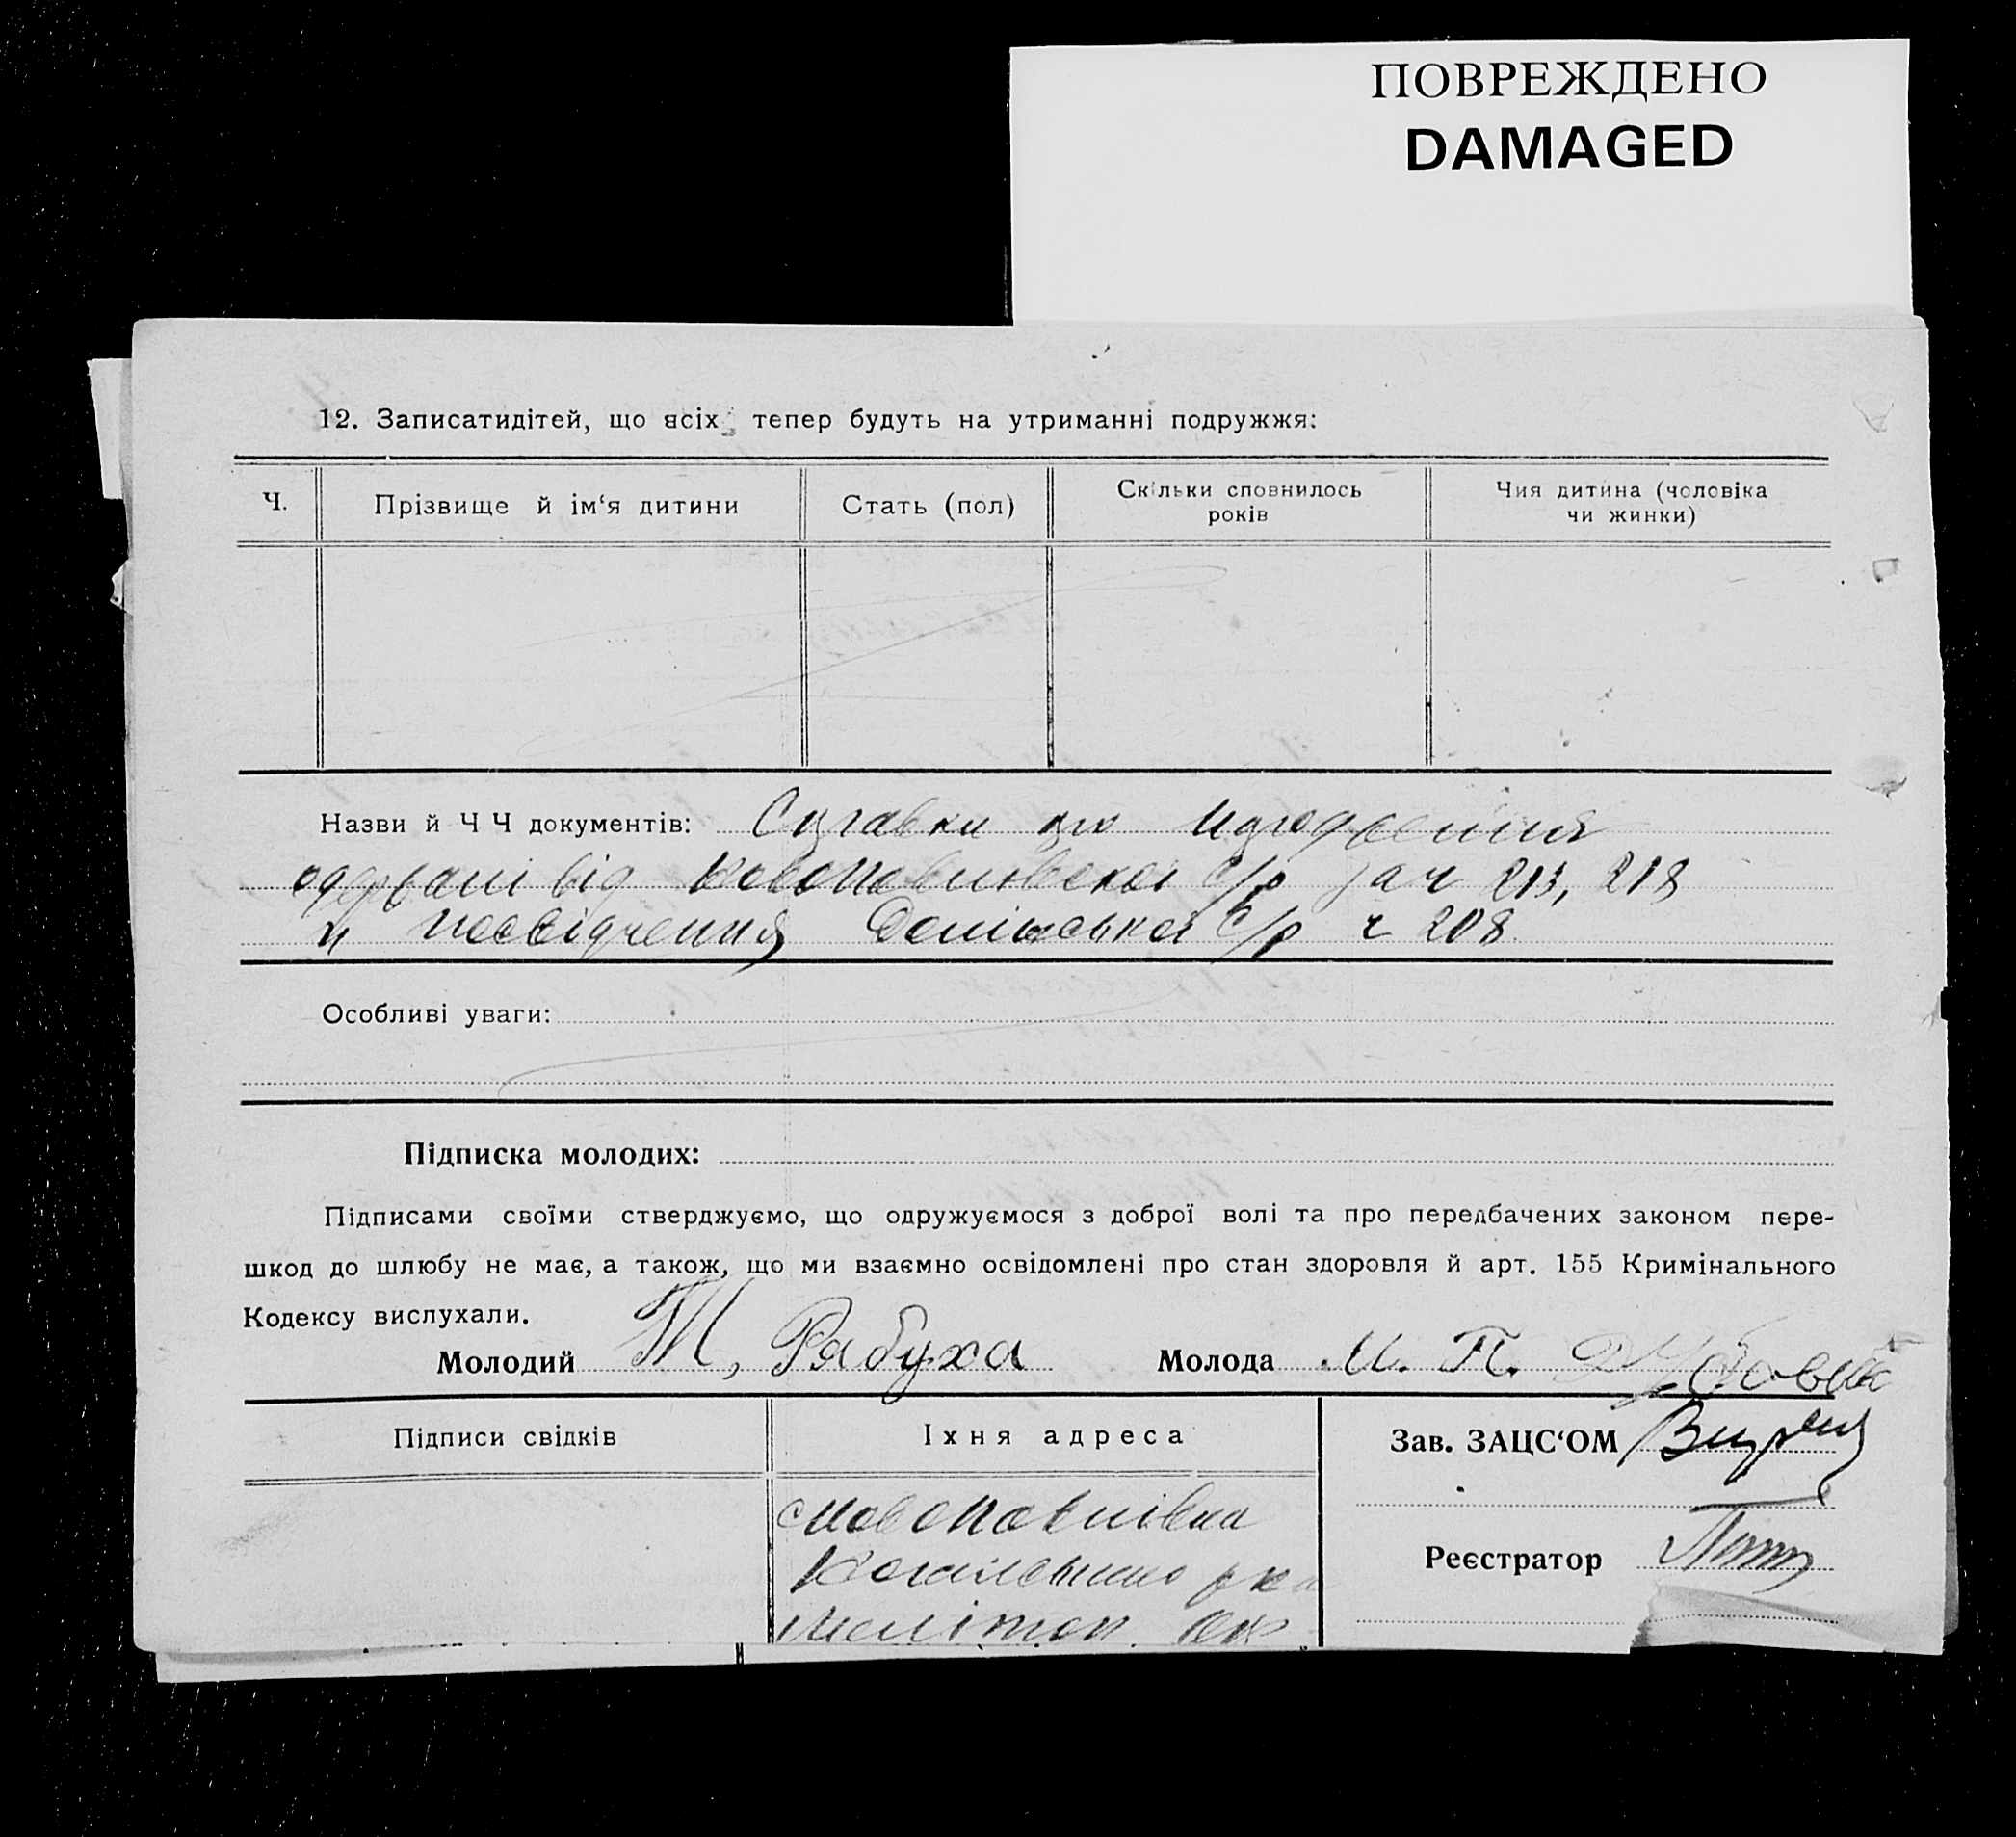 ПОВРЕЖДЕНО
DAMAGED
12. Записатидітей, що всіх тепер будуть на утриманні подружжя:
Ч.
Прізвище й ім‘я дитини
Стать (пол)
Скільки сповнилось
років
Чия дитина (чоловіка
чи жинки)
Назви й Ч Ч документів: Справки про
одержані від Новопавлівської с/р за ч 213, 218
и посвідчення с/р ч 208
Особливі уваги:
Підписка молодих:
Підписами своїми стверджуємо, що одружуємося з доброї волі та про передбачених законом пере-
шкод до шлюбу не має, а також, що ми взаємно освідомлені про стан здоровля й арт. 155 Кримінального
Кодексу вислухали.
Молодий Т, Рябуха Молода М. П.
Підписи свідків
Їхня адреса
Новопавлівка
Мелітоп. окр
Зав. ЗАЦС‘ОМ
Реєстратор